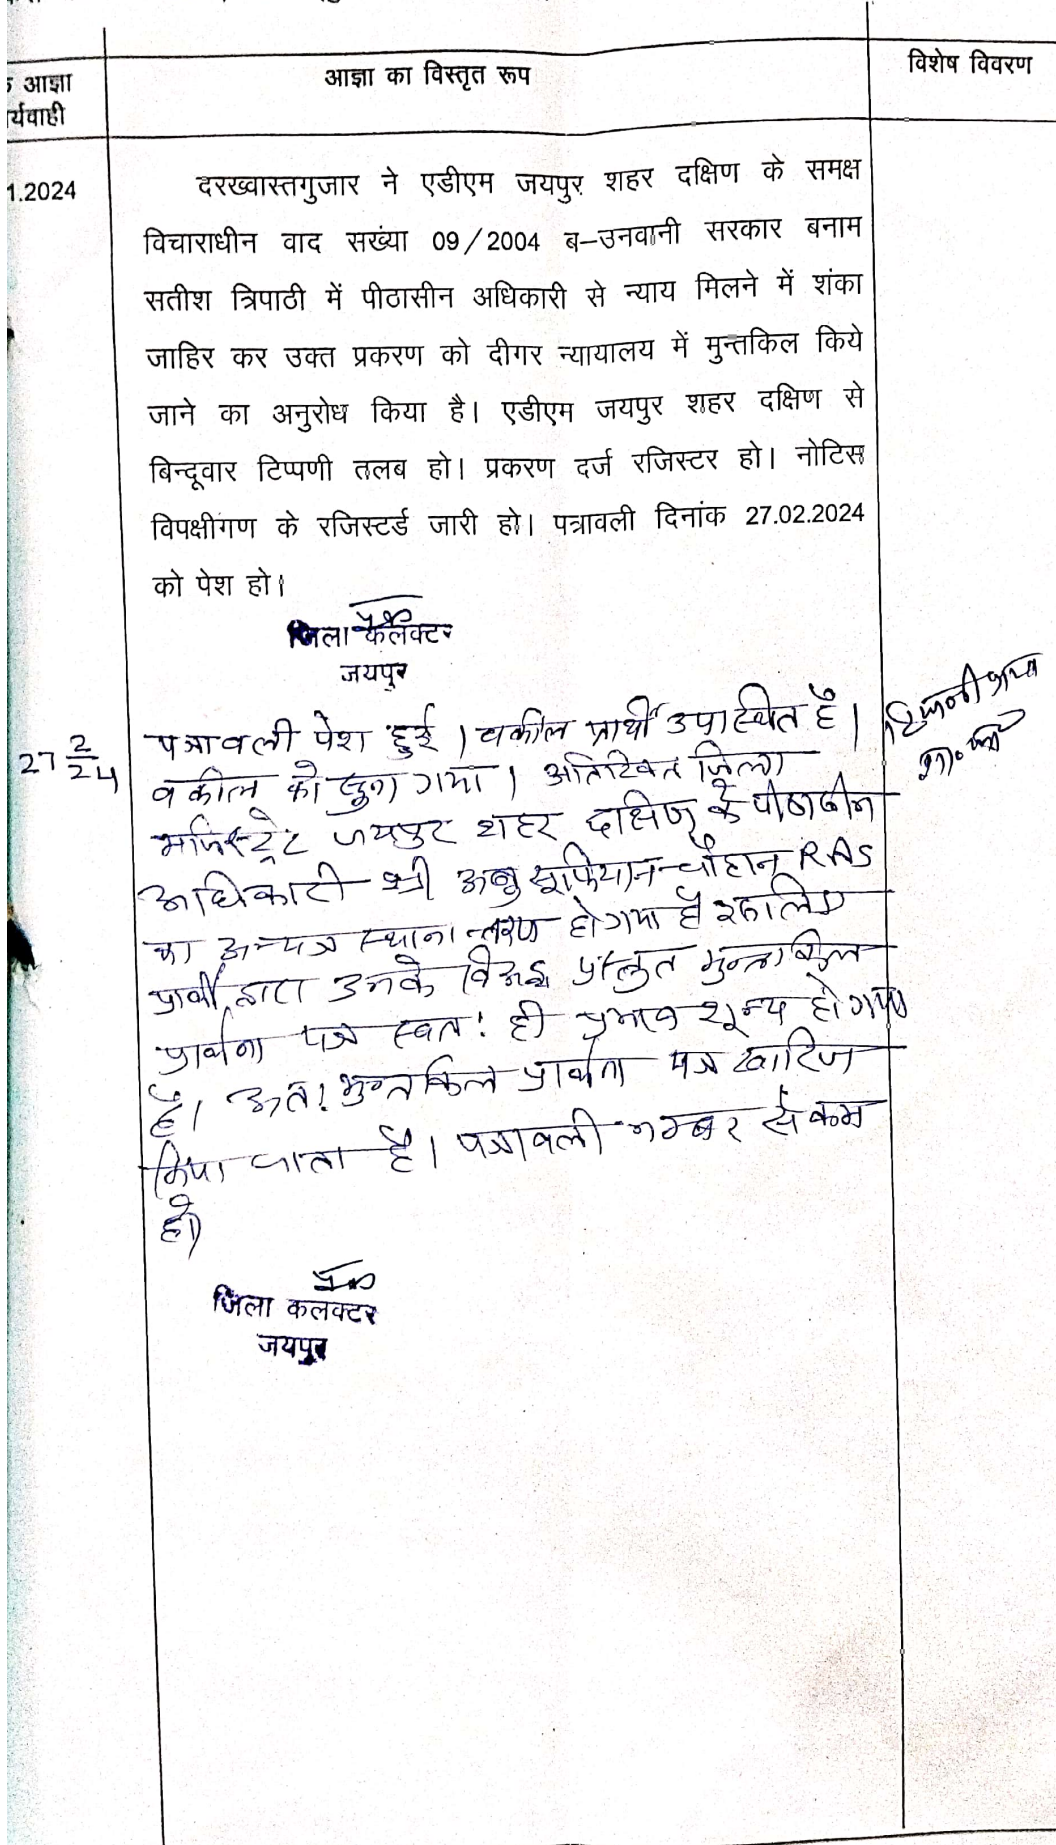 आज्ञा
र्यवाही
आज्ञा का विस्तृत रूप
विशेष विवरण
1.2024
दरख्वास्तगुजार ने एडीएम जयपुर शहर दक्षिण के समक्ष
विचाराधीन वाद सख्ंया 09/2004 ब–उनवानी सरकार बनाम
सतीश त्रिपाठी में पीठासीन अधिकारी से न्याय मिलने में शंका
जाहिर कर उक्त प्रकरण को दीगर न्यायालय में मुन्तकिल किये
जाने का अनुरोध किया है। एडीएम जयपुर शहर दक्षिण से
बिन्दूवार टिप्पणी तलब हो। प्रकरण दर्ज रजिस्टर हो। नोटिस
विपक्षीगण के रजिस्टर्ड जारी हो। पत्रावली दिनांक 27.02.2024
को पेश हो।
जिला कलक्टर
जयपुर
27 2/24
पत्रावली पेश हुई। वकील प्रार्थी उपस्थित है।
वकील को सुना गया। अतिरिक्त जिला
मजिस्ट्रेट जयपुर शहर दक्षिण के पीठासीन
अधिकारी श्री अबु सूफियान चौहान RAS
का अन्यत्र स्थानान्तरण हो गया है इसलिए
प्रार्थी द्वारा उनके विरूद्ध प्रस्तुत मुन्तकिल
प्रार्थना पत्र स्वतः ही प्रभाव शून्य हो गया
है। अतः मुन्तकिल प्रार्थना पत्र खारिज
किया जाता है। पत्रावली नम्बर से कम
हो
जिला कलक्टर
जयपुर